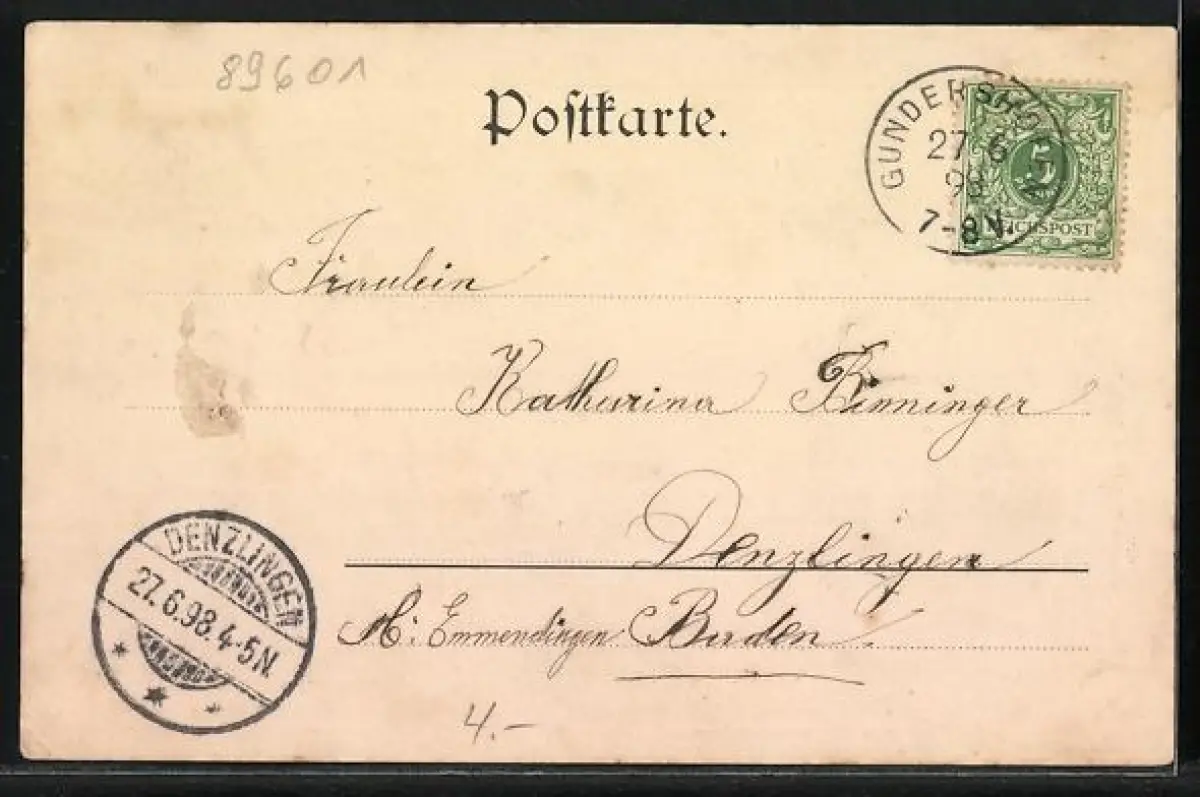 89601
Postkarte.
GUNDERSHOFEN
27 6
98
7-8 N.
5
REICHSPOST
Fräulein
Katharina Binninger
Denzlingen
A: Emmendingen Baden.
DENZLINGEN
27.6.98.4-5N.
4.-